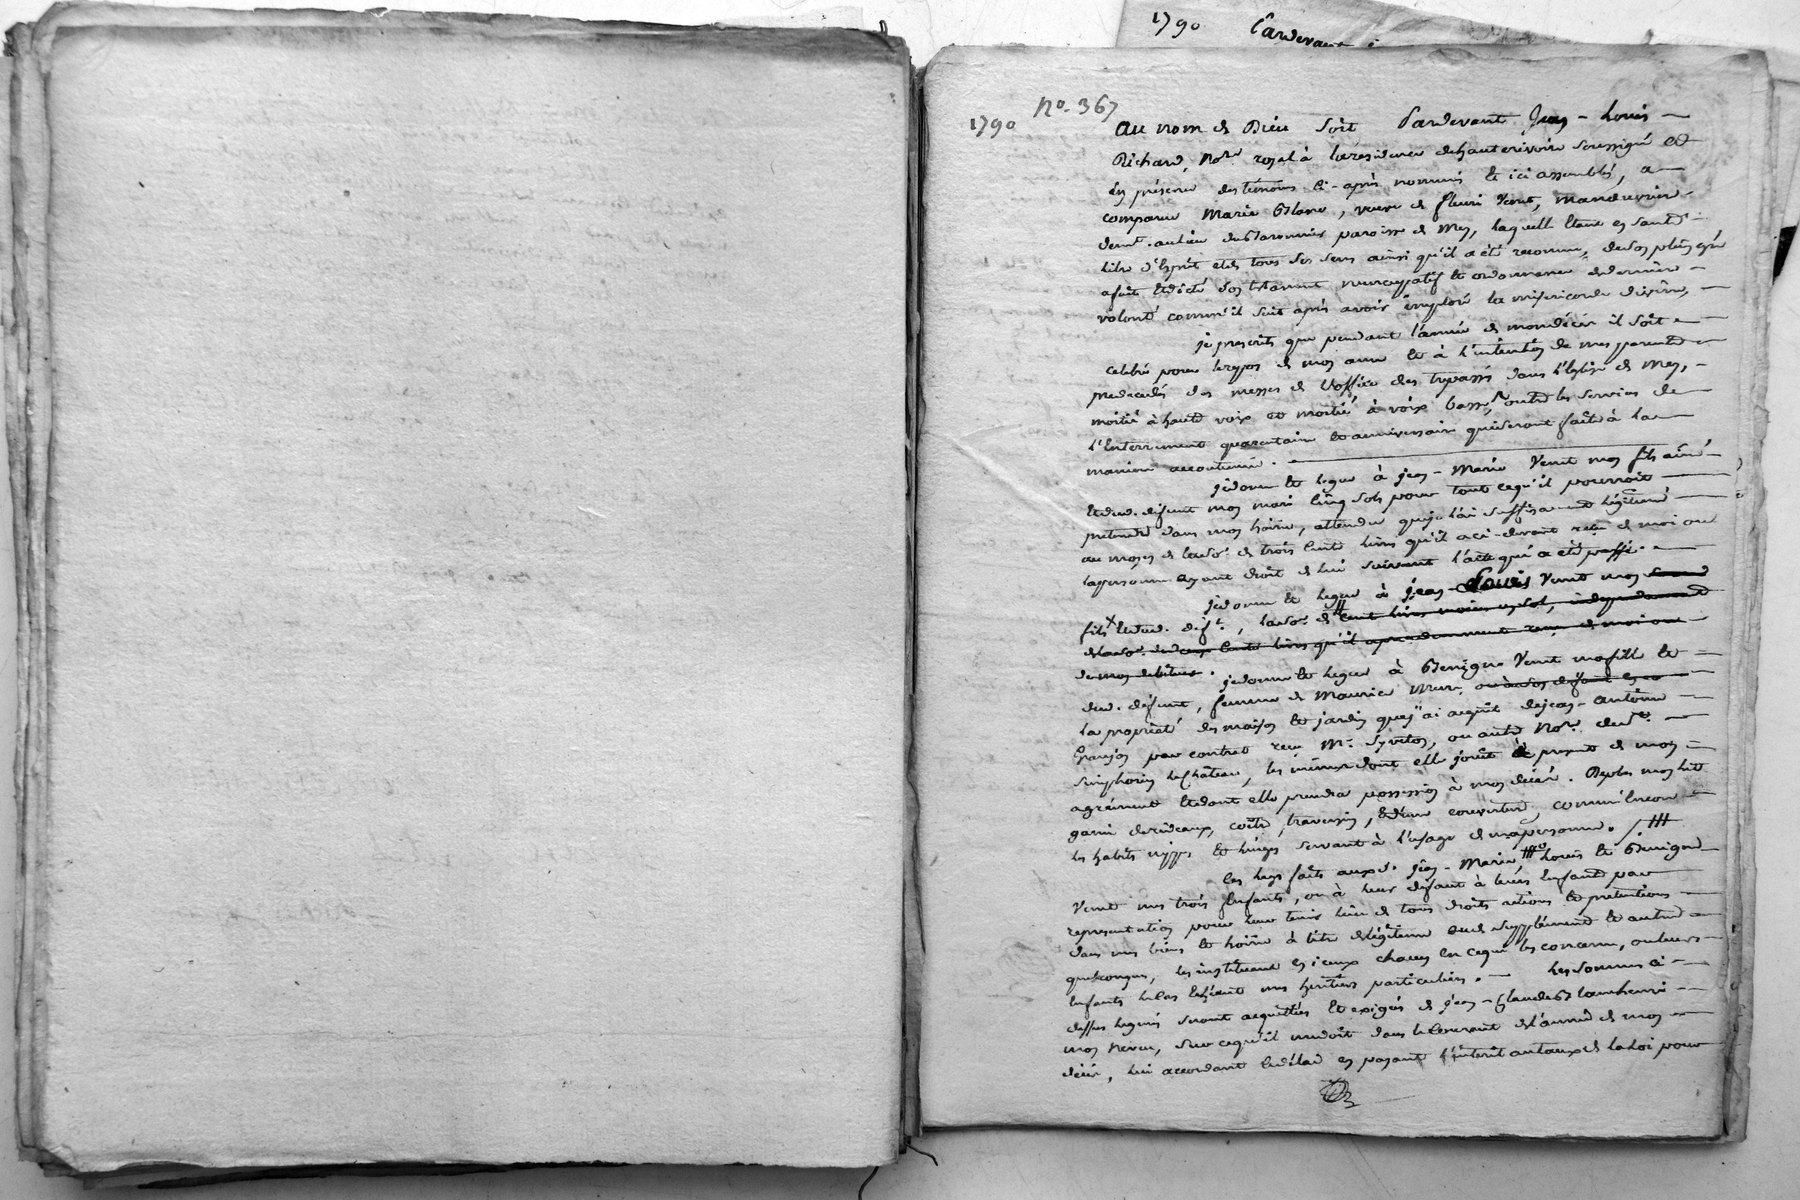 1790 Pardevant
No. 367
1790
Au nom de Dieu soit Pardevant Jean-Louis
Richard, Nore. royal à la residence de hauterivoire soussigné et
en présence des témoins ci-après nommés et ici assemblés, a
comparu Marie Blanc, veuve de fleuri Venet,
demt. au lieu paroisse de Mey, laquelle étant en santé
libre d'Esprit et de tous ses sens ainsi qu'il a été reconnu, de son plein gré
a fait et dicté son testament nuncupatif et ordonnance de derniere
volonté comm'il suit après avoir imploré la misericorde divine,
je prescrits que pendant l'année de mon décès il soit
celebré pour le repos de mon ame et à l'intention de mes parents
predecedés des messes de l'office des trepassés dans l'Eglise de Mey,
moitié à haute voix et moitié à voix basse, outre les services de
l'Enterrement quarantaine et anniversaire qui seront faits à la
maniere accoutumée.
je donne et legue à jean-Marie Venet mon fils ainé
et dud. defunt mon mari Cinq sols pour tout ce qu'il pourroit
pretendre dans mon hoirie, attendu que je l'ai suffisament légitimé
au moyen de la so. de trois Cents livres qu'il a ci-devant reçu de moi ou
la personne ayant droit de lui suivant l'acte qui a été passé.
je donne et legue à jean-Louis Venet mon
fils et dud. deft., la so. de cent livres moins un sol, independamment
de la so. de deux Cents livres qu'il a precedemment reçu de moi ou
de mes debiteurs. je donne et legue à Benigne Venet ma fille et
dud. defunt, femme de Maurice
la proprieté des maison et jardin que j'ai acquit de jean-antoine
Granjon par contrat reçu Me. Syveton, ou autre Nore. de St.
Simphorien le Château, les mêmes dont elle jouit à présent de mon
agrément et dont elle prendra possession à mon décès. Deplus mon lit
garni de rideaux, coitre, traversin, et d'une couverture comm'Encore
les habits nippes et linges servant à l'usage de ma personne.
les legs faits auxd. jean-Marie, Louis et Benigne
Venet mes trois Enfants, ou à leur défaut à leurs Enfants par
representation pour leur tenir lieu de tous droits actions et prétentions
dans mes biens et hoirie à titre de légitime suplément et autres
quelconques, les instituant en iceux chacun en ce qui les concerne, ou leurs
Enfants mes heritiers particuliers. Les sommes ci-
dessus leguées seront acquittées et exigées de jean-Claude Blanchenri
mon neveu, sur ce qu'il me doit dans le Courant de l'année de mon
décès, lui accordant led. délai en payant l'intérêt au taux de la Loi pour